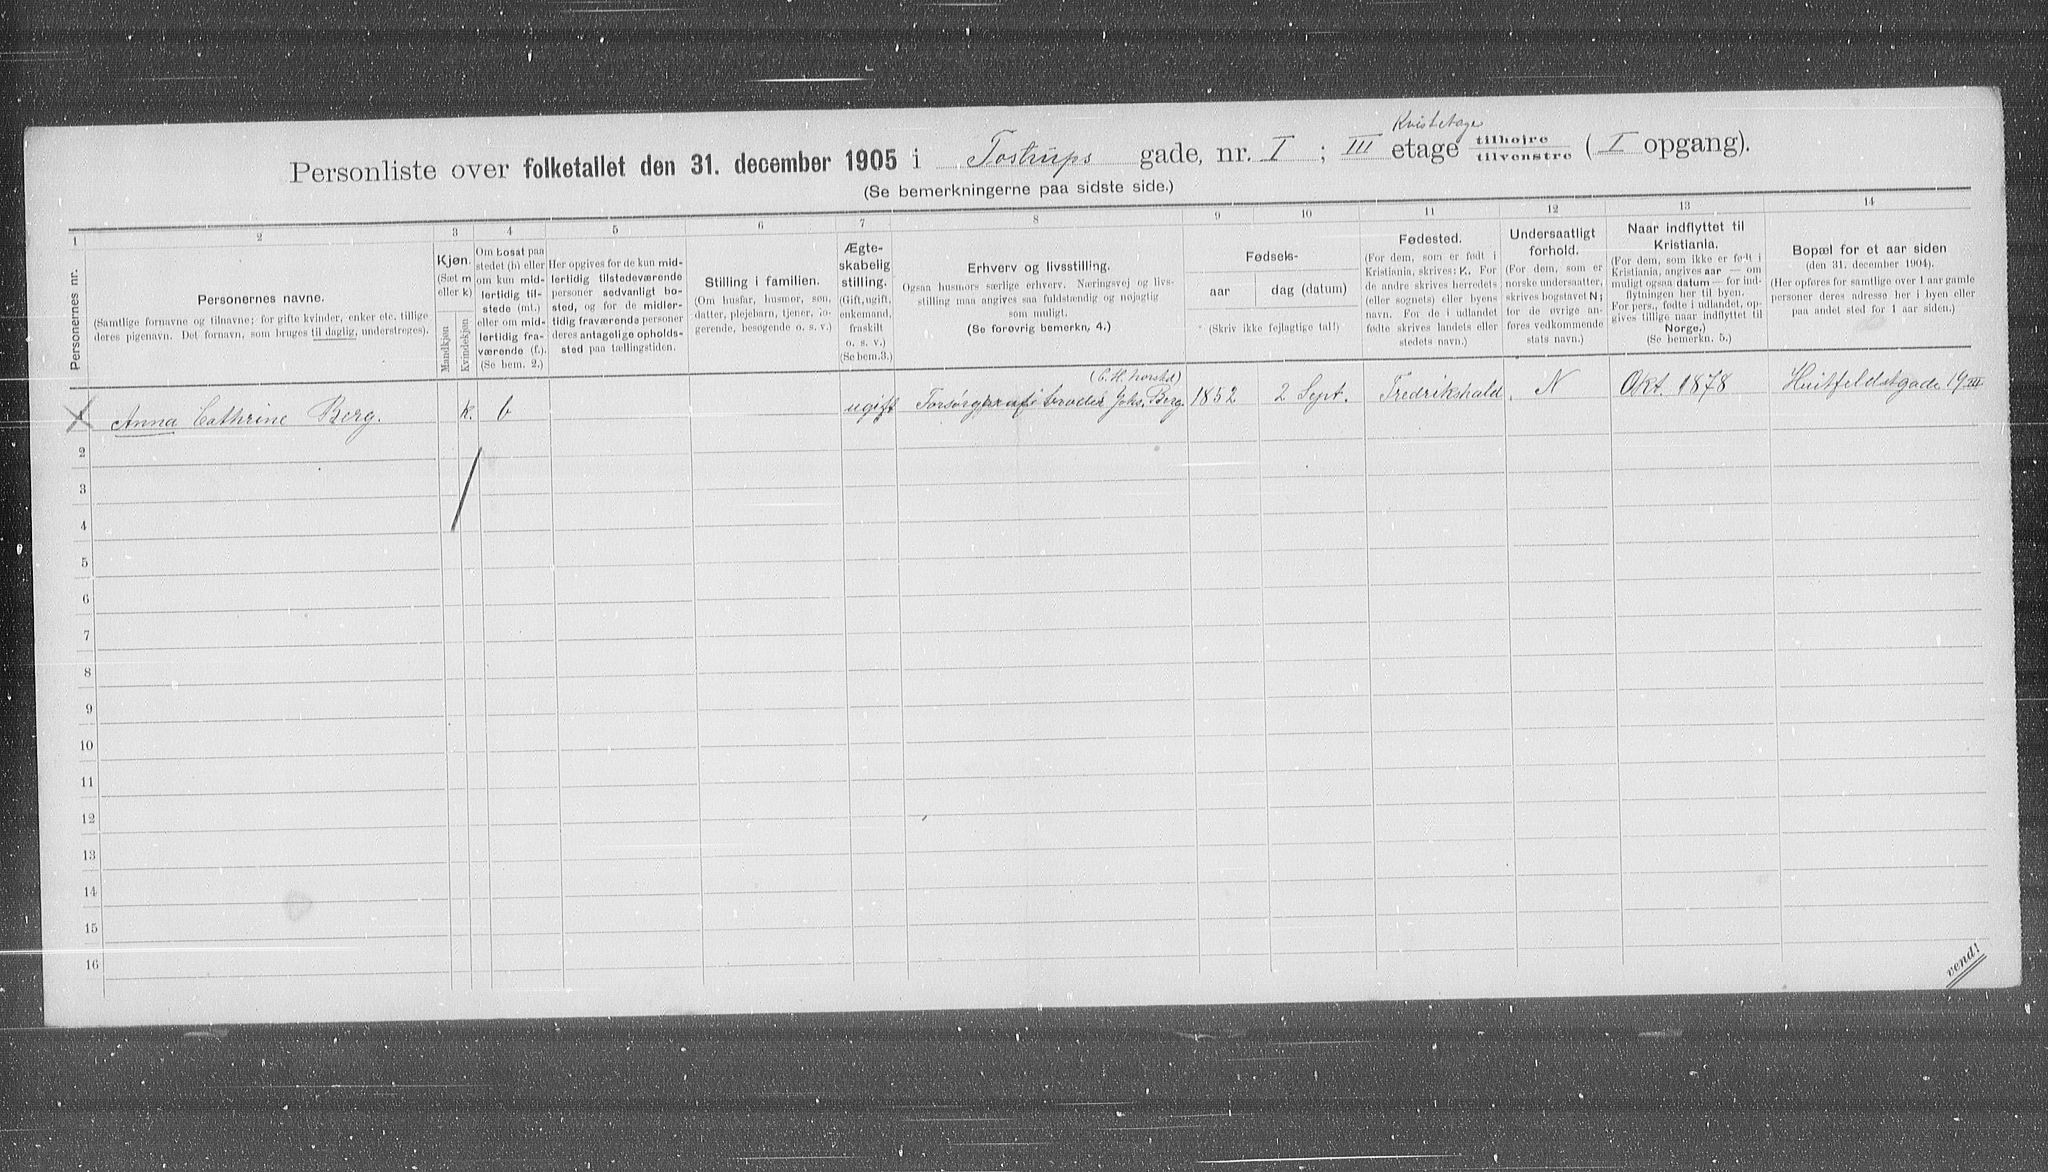 Kvistetage
Personliste over folketallet den 31. december 1905 i Tostrups gade, nr. I ; III etage tilhøjre tilvenstre ( I opgang).
(Se bemerkningerne paa sidste side.)
1 2 3 4 5 6 7 8 9 10 11 12 13 14
Personernes nr.
Personernes navne.
(Samtlige fornavne og tilnavne; for gifte kvinder, enker etc. tillige
deres pigenavn. Det fornavn, som bruges til daglig, understreges).
Kjøn.
(Sæt m
eller k)
Mandkjøn
Kvindekjøn
Om bosat paa
stedet (b) eller
om kun mid-
lertidig til-
stede (mt.)
eller om mid-
lertidig fra-
værende (f.).
(Se bem. 2.)
Her opgives for de kun mid-
lertidig tilstedeværende
personer sedvanligt bo-
sted, og for de midler-
tidig fraværende personer
deres antagelige opholds-
sted paa tællingstiden.
Stilling i familien.
(Om husfar, husmor, søn,
datter, plejebarn, tjener, lo-
gerende, besøgende o. s. v.)
Ægte-
skabelig
stilling.
(Gift, ugift,
enkemand,
fraskilt
o. s. v.)
(Se bem.3.)
Erhverv og livsstilling.
Ogsaa husmors særlige erhverv. Næringsvej og livs-
stilling maa angives saa fuldstændig og nøjagtig
som muligt.
(Se forøvrig bemerkn, 4.)
Fødsels-
aar
dag (datum)
(Skriv ikke fejlagtige tal!)
Fødested.
(For dem, som er født i
Kristiania, skrives: K. For
de andre skrives herredets
(eller sognets) eller byens
navn. For de i udlandet
fødte skrives landets eller
stedets navn.)
Undersaatligt
forhold.
(For dem, som er
norske undersaatter,
skrives bogstavet N;
for de øvrige an-
føres vedkommende
stats navn.)
Naar indflyttet til
Kristiania.
(For dem, som ikke er født i
Kristiania, angives aar — om
muligt ogsaa datum — for ind-
flytningen her til byen.
For pers., fødte i udlandet, op-
gives tillige naar indflyttet til
Norge,)
(Se bemerkn. 5.)
Bopæl for et aar siden
(den 31. december 1904).
(Her opføres for samtlige over 1 aar gamle
personer deres adresse her i byen eller
paa andet sted for 1 aar siden.)
1 Anna Cathrine Berg. k. b ugift Forsørges af broder Johs. Berg. 1852 2 Sept. Fredrikshald N Okt. 1878 Huitfeldstgade 19 III
2
3
4
5
6
7
8
9
10
11
12
13
14
15
16
vend!